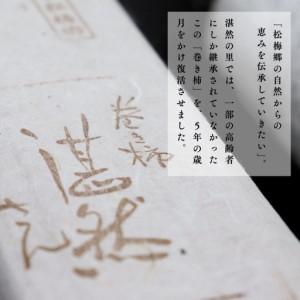 「松梅郷の自然からの
恵みを伝承していきたい」。
湛然の里では、一部の高齢者
にしか継承されていなかった
この「巻き柿」を、5年の歳
月をかけ復活させました。
巻き柿
湛然